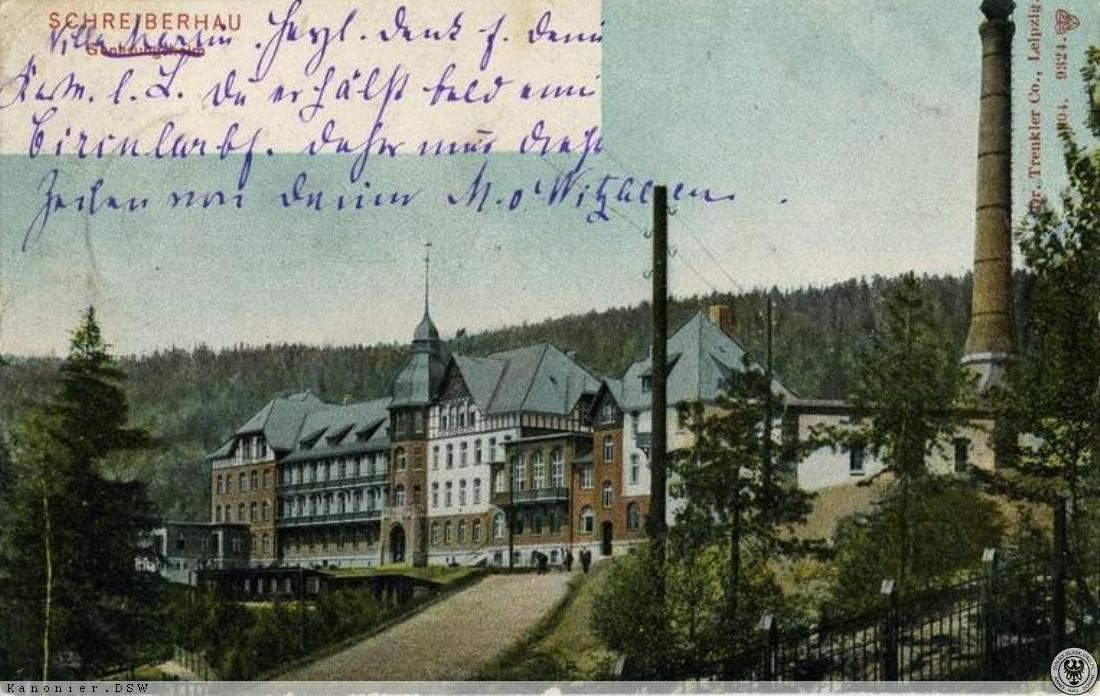 SCHREIBERHAU
Genesungsheim
Villa . Herzl. Dank f. Deine
Karte. Du erhälst bald ein
Circularbf. daher nur diese
Zeilen von Deiner M. v. Witzleben.
Dr. Trenkler Co., Leipzig
1904. 9324.
Kanonier.DSW